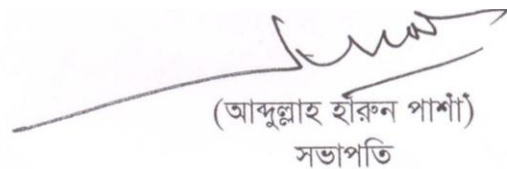 (আব্দুল্লাহ হারুন পাশা)
সভাপতি